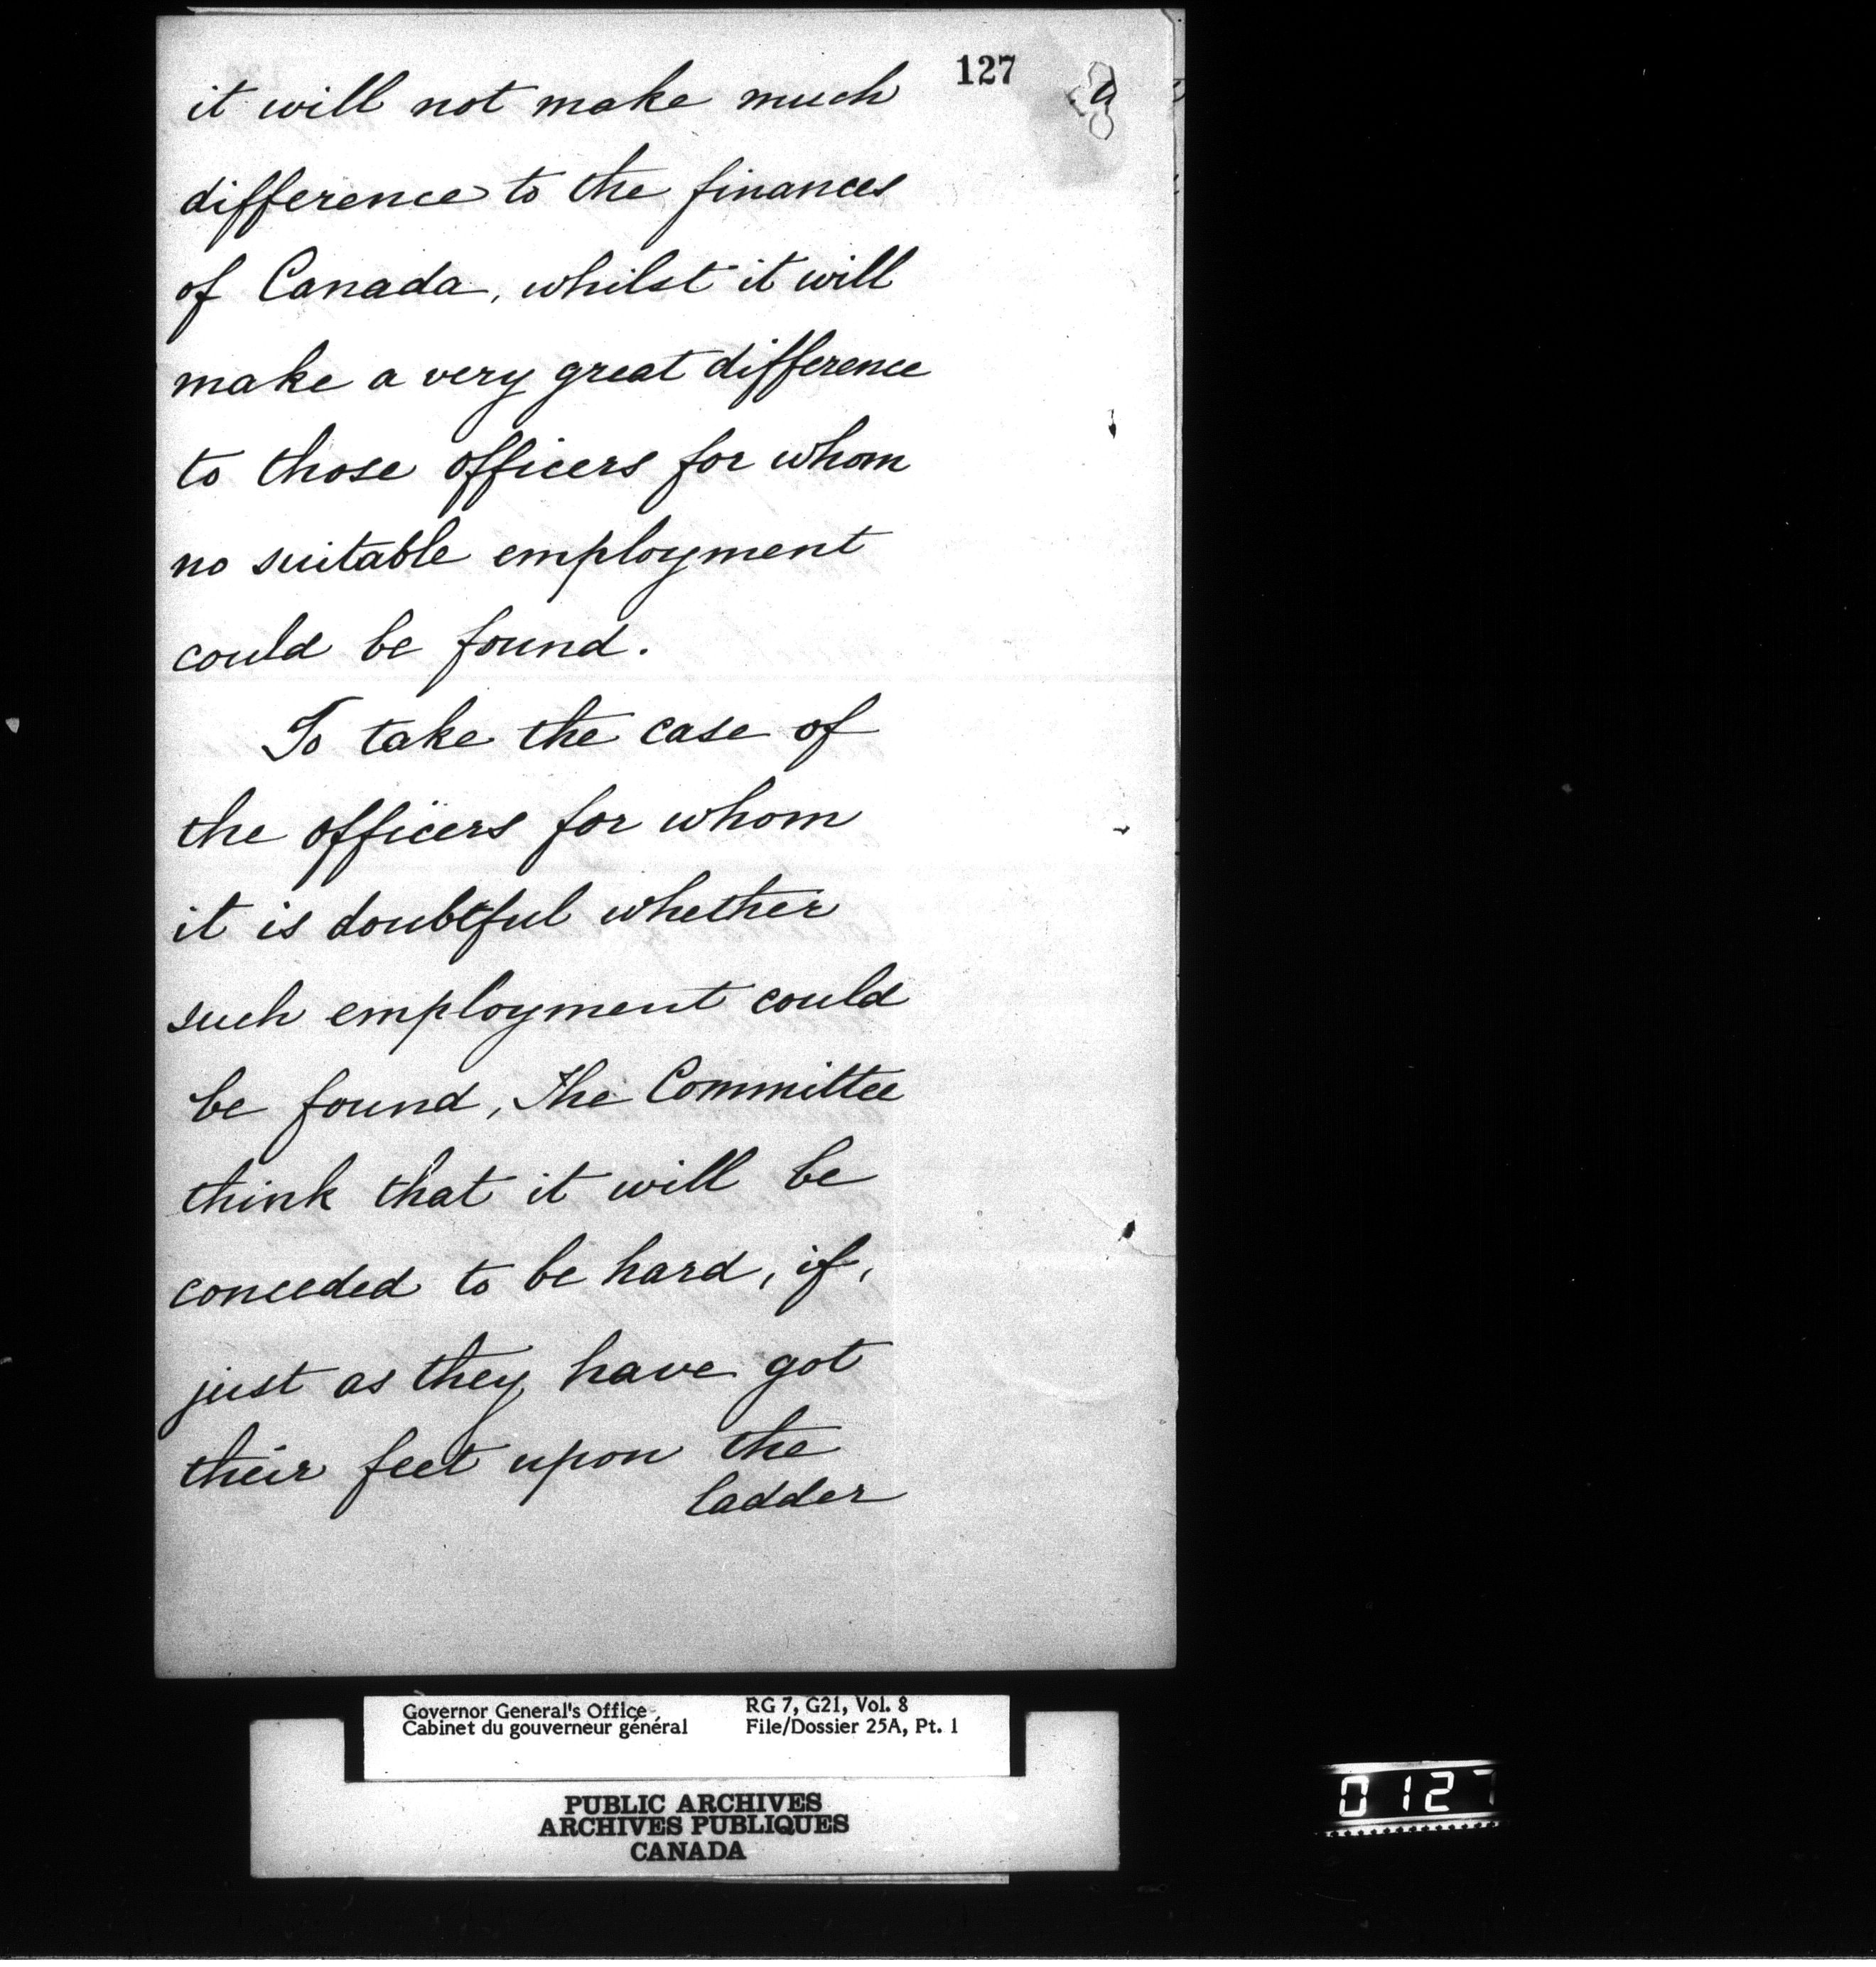 127
it will not make much
difference to the finances
of Canada, whilst it will
make a very great difference
to those officers for whom
no suitable employment
could be found.
To take the case of
the officers for whom
it is doubtful whether
such employment could
be found, The Committee
think that it will be
conceded to be hard, if,
just as they have got
their feet upon the
ladder
Governor General's Office RG 7, G21, Vol. 8
Cabinet du gouverneur général File/Dossier 25A, Pt. 1
PUBLIC ARCHIVES
ARCHIVES PUBLIQUES
CANADA
0127